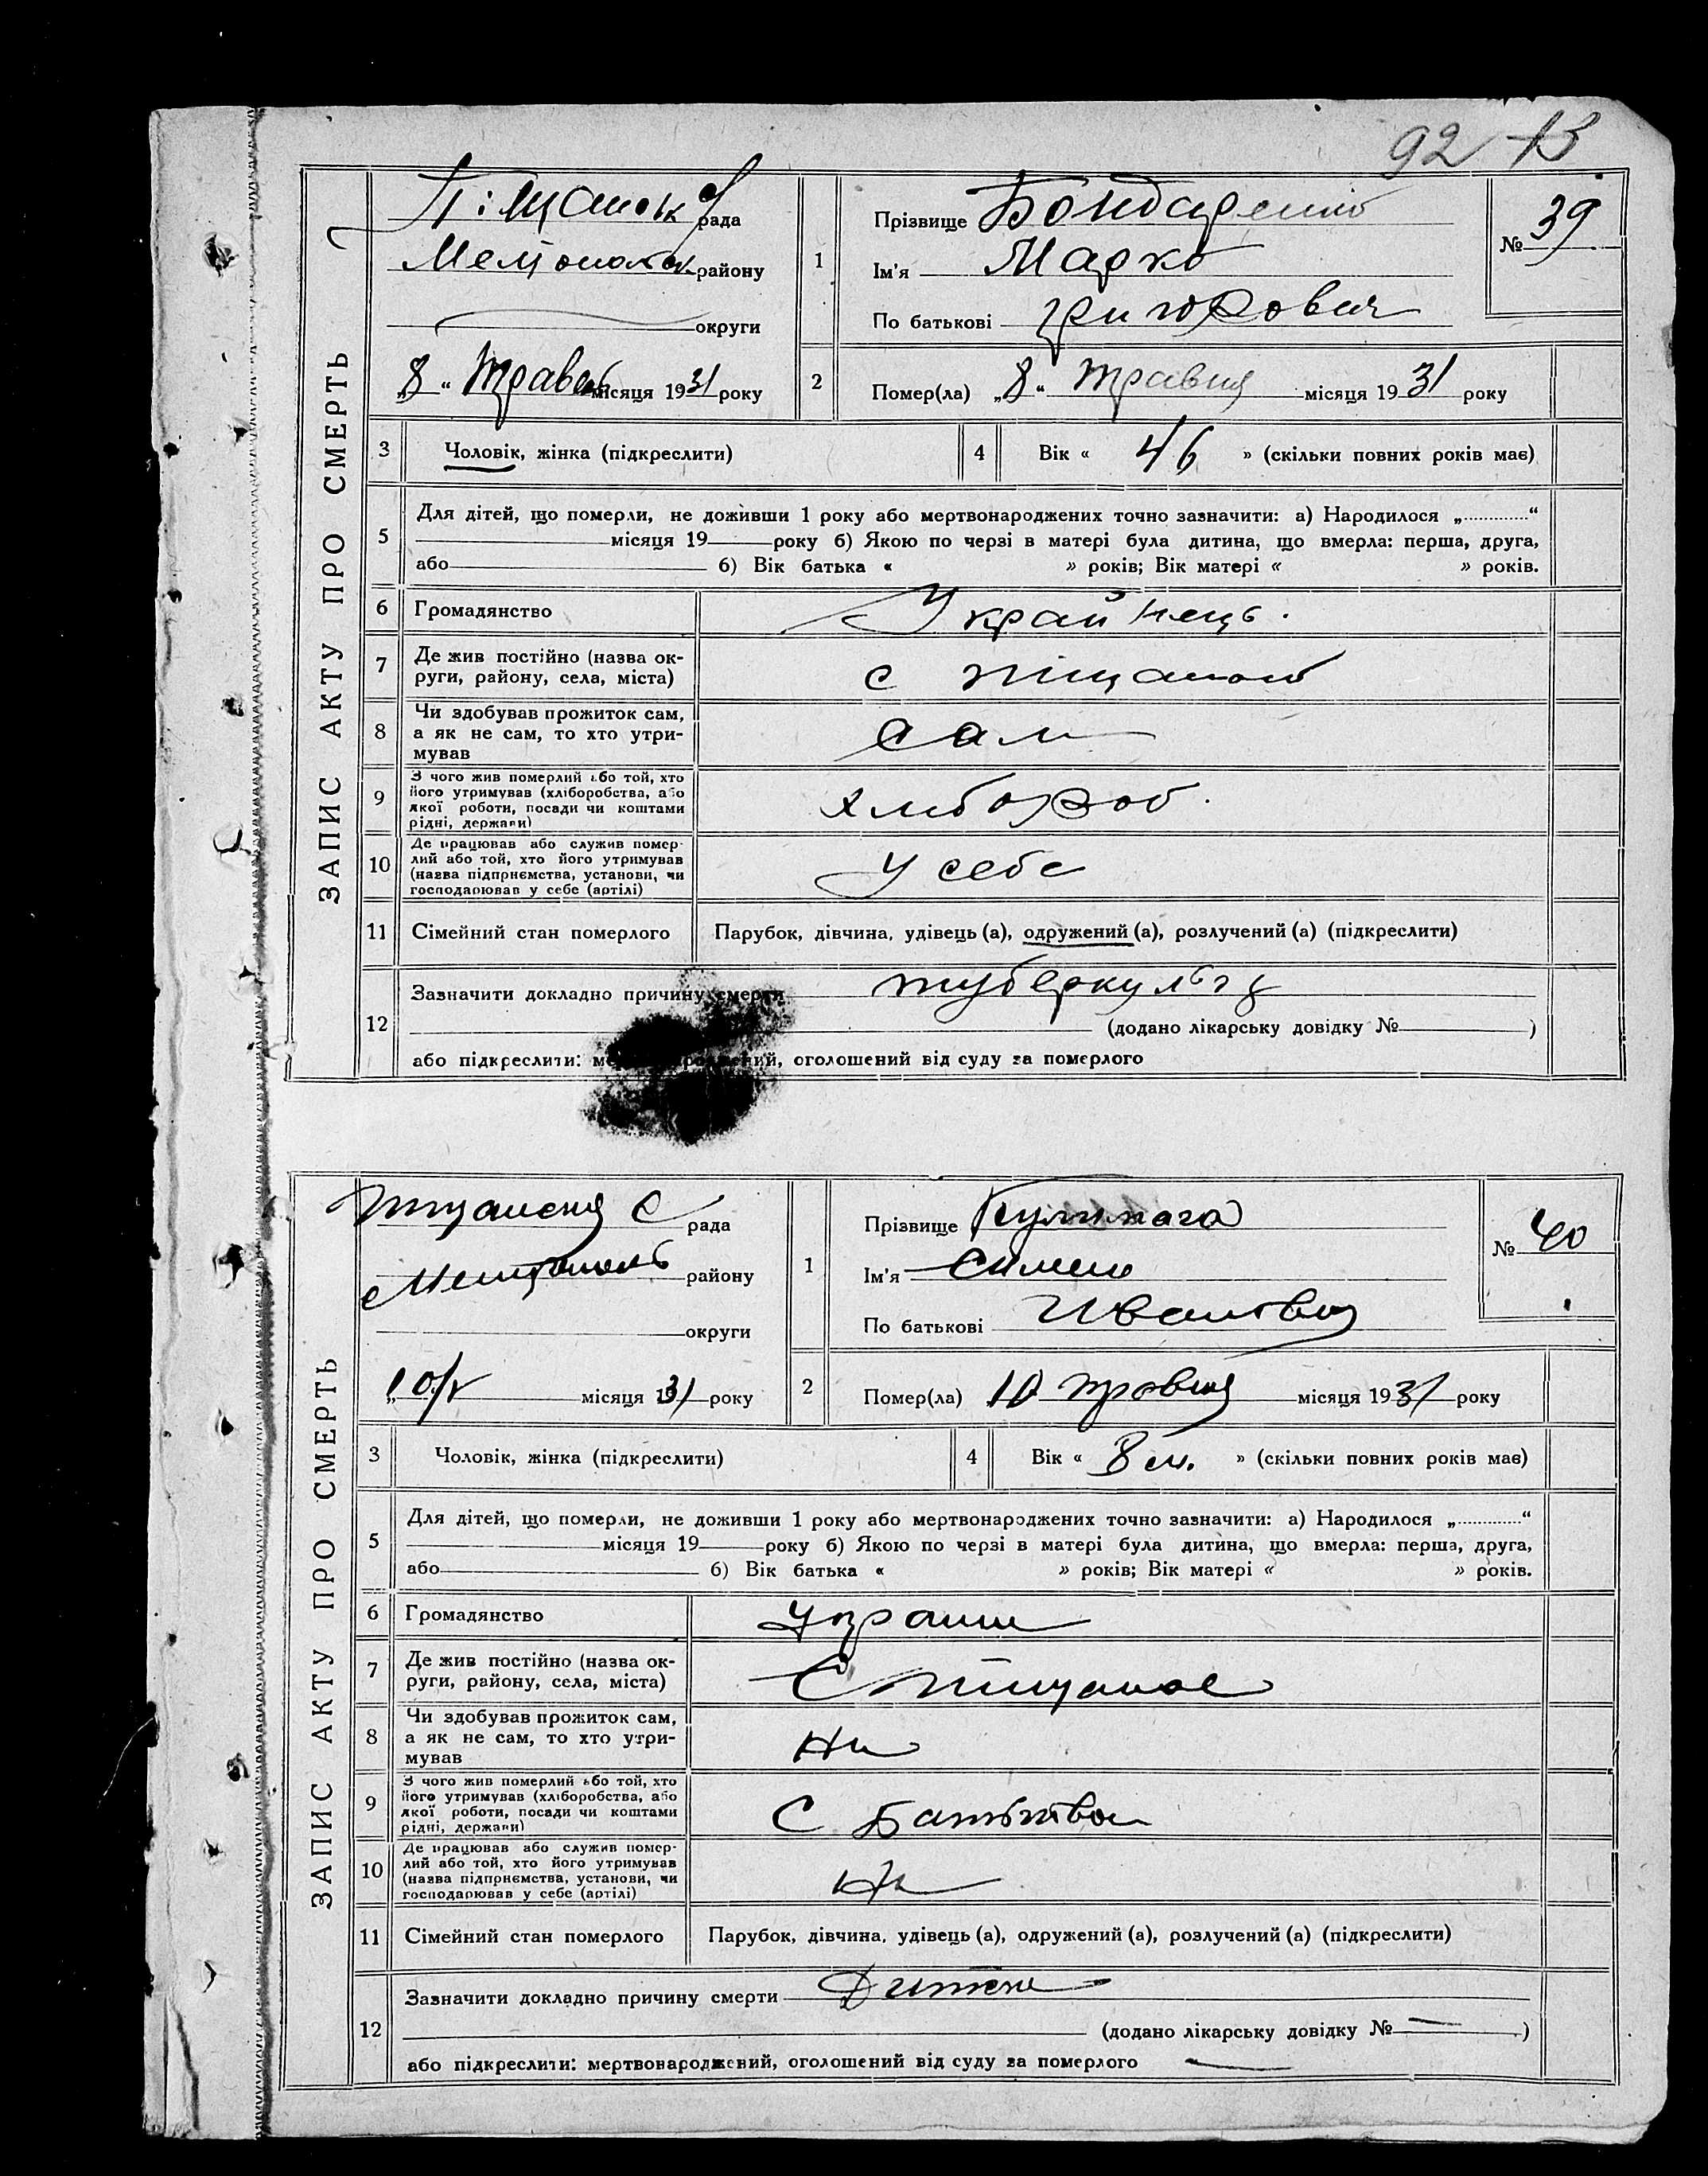 92 13
ЗАПИС АКТУ ПРО СМЕРТЬ
Піщанськ С рада
Меліополь району
округи
„8“ Травень місяця 1931 року
1
Прізвище Бондаренко
Ім'я Марко
По батькові Григорович
№ 39
2
Помер(ла) „8“ Травня місяця 1931 року
3 Чоловік, жінка (підкреслити)
4 Вік « 46 » (скільки повних років має)
5
Для дітей, що померли, не доживши 1 року або мертвонароджених точно зазначити: а) Народилося „............“
місяця 19 року б) Якою по черзі в матері була дитина, що вмерла: перша, друга,
або 6) Вік батька « » років; Вік матері « » років.
6 Громадянство Украйнець.
7 Де жив постійно (назва ок-
руги, району, села, міста)
с Піщаное
8 Чи здобував прожиток сам,
а як не сам, то хто утри-
мував
сам
9 З чого жив померлий або той, хто
його утримував (хліборобства, або
якої роботи, посади чи коштами
рідні, держави)
хлибороб.
10 Де працював або служив помер-
лий або той, хто його утримував
(назва підприємства, установи, чи
господарював у себе (артілі)
у себе
11 Сімейний стан померлого Парубок, дівчина, удівець (а), одружений (а), розлучений (а) (підкреслити)
12
Зазначити докладно причину смерти туберкульоз
(додано лікарську довідку № )
або підкреслити: ий, оголошений від суду за померлого
ЗАПИС АКТУ ПРО СМЕРТЬ
С рада
району
округи
„10/V місяця 1931 року
1
Прізвище
Ім'я Симен
По батькові Иванович
№ 40
2
Помер(ла) 10 травня місяця 1931 року
3 Чоловік, жінка (підкреслити)
4 Вік « 8 м. » (скільки повних років має)
5
Для дітей, що померли, не доживши 1 року або мертвонароджених точно зазначити: а) Народилося „............“
місяця 19 року б) Якою по черзі в матері була дитина, що вмерла: перша, друга,
або 6) Вік батька « » років; Вік матері « » років.
6 Громадянство
7 Де жив постійно (назва ок-
руги, району, села, міста)
С Піщаное
8 Чи здобував прожиток сам,
а як не сам, то хто утри-
мував
Ни
9 З чого жив померлий або той, хто
його утримував (хліборобства, або
якої роботи, посади чи коштами
рідні, держави)
С
10 Де працював або служив помер-
лий або той, хто його утримував
(назва підприємства, установи, чи
господарював у себе (артілі)
Ни
11 Сімейний стан померлого Парубок, дівчина, удівець (а), одружений (а), розлучений (а) (підкреслити)
12
Зазначити докладно причину смерти
(додано лікарську довідку № )
або підкреслити: мертвонароджений, оголошений від суду за померлого